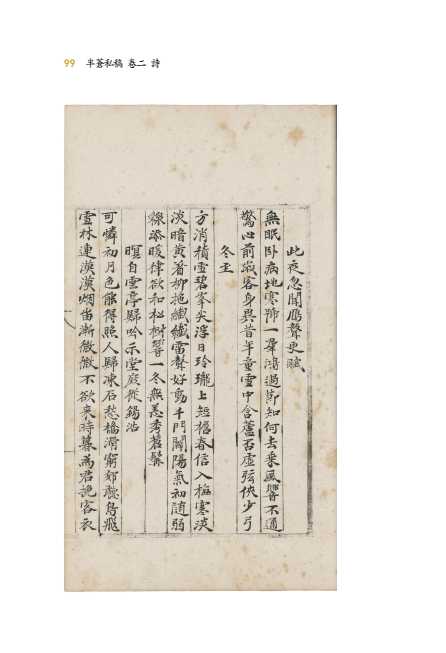 99 半蒼私稿 卷二 詩
此夜忽聞鴈聲更賦
無眠卧病地寒一羣鴻過知何去乘風響不通
驚心前歲客身異昔年童雪中含蘆否虛弦俠少弓
冬至
方消積雪碧峯尖浮日玲瓏上短檐春信入梅寒淡
淡暗黃着柳拖纖纖雷聲好動千門闢陽氣初隨弱
線添暖律欲和松樹響一冬無恙秀蒼髯
暝自雲亭歸吟示堂庭從錫浩
可憐初月色能得照人歸凍石愁橋滑窮郊晚鳥飛
雪林連漠漠烟岫漸微微不欲來時暮爲君挽客衣